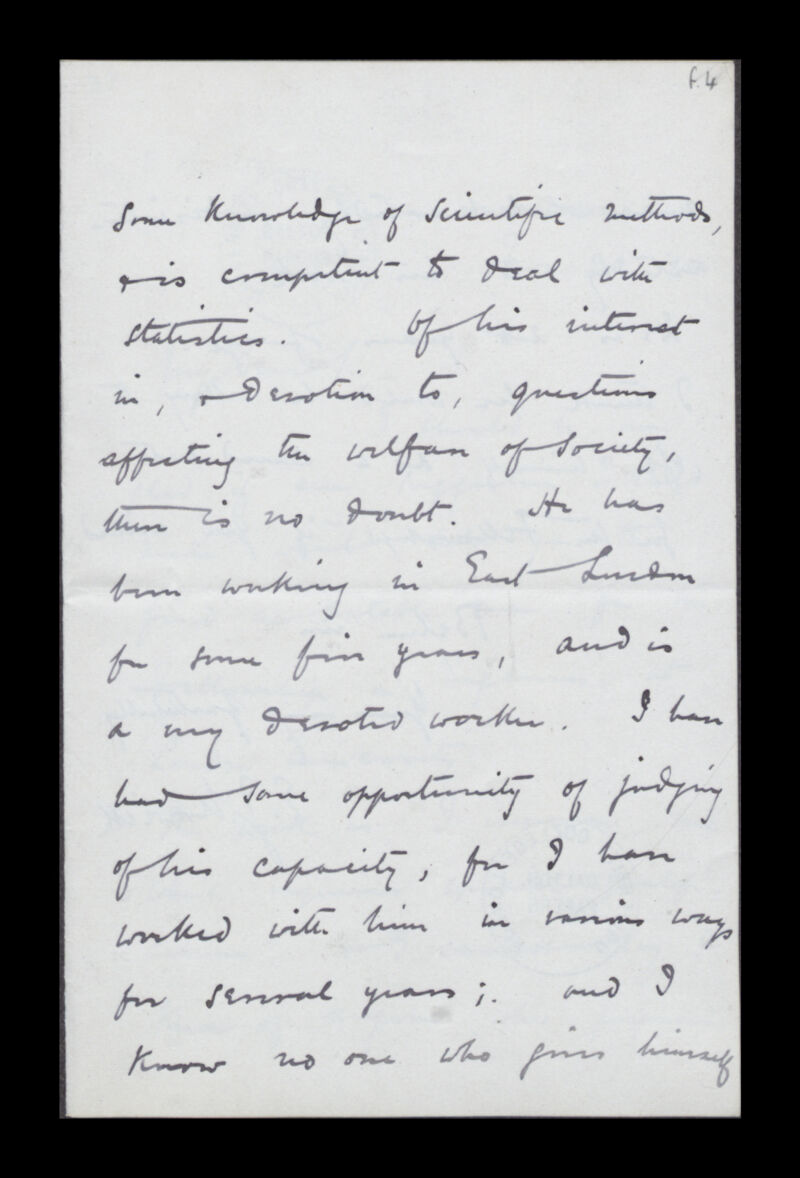 f. 4
Some knowledge of scientific methods,
& is competent to deal with
statistics. Of his interest
in, & devotion to, questions
affecting the welfare of Society,
there is no doubt. He has
been working in East London
for some five years, and is
a very devoted worker. I have
had some opportunity of judging
of his capacity, for I have
worked with him in various ways
for several years; and I
know no one who gives himself